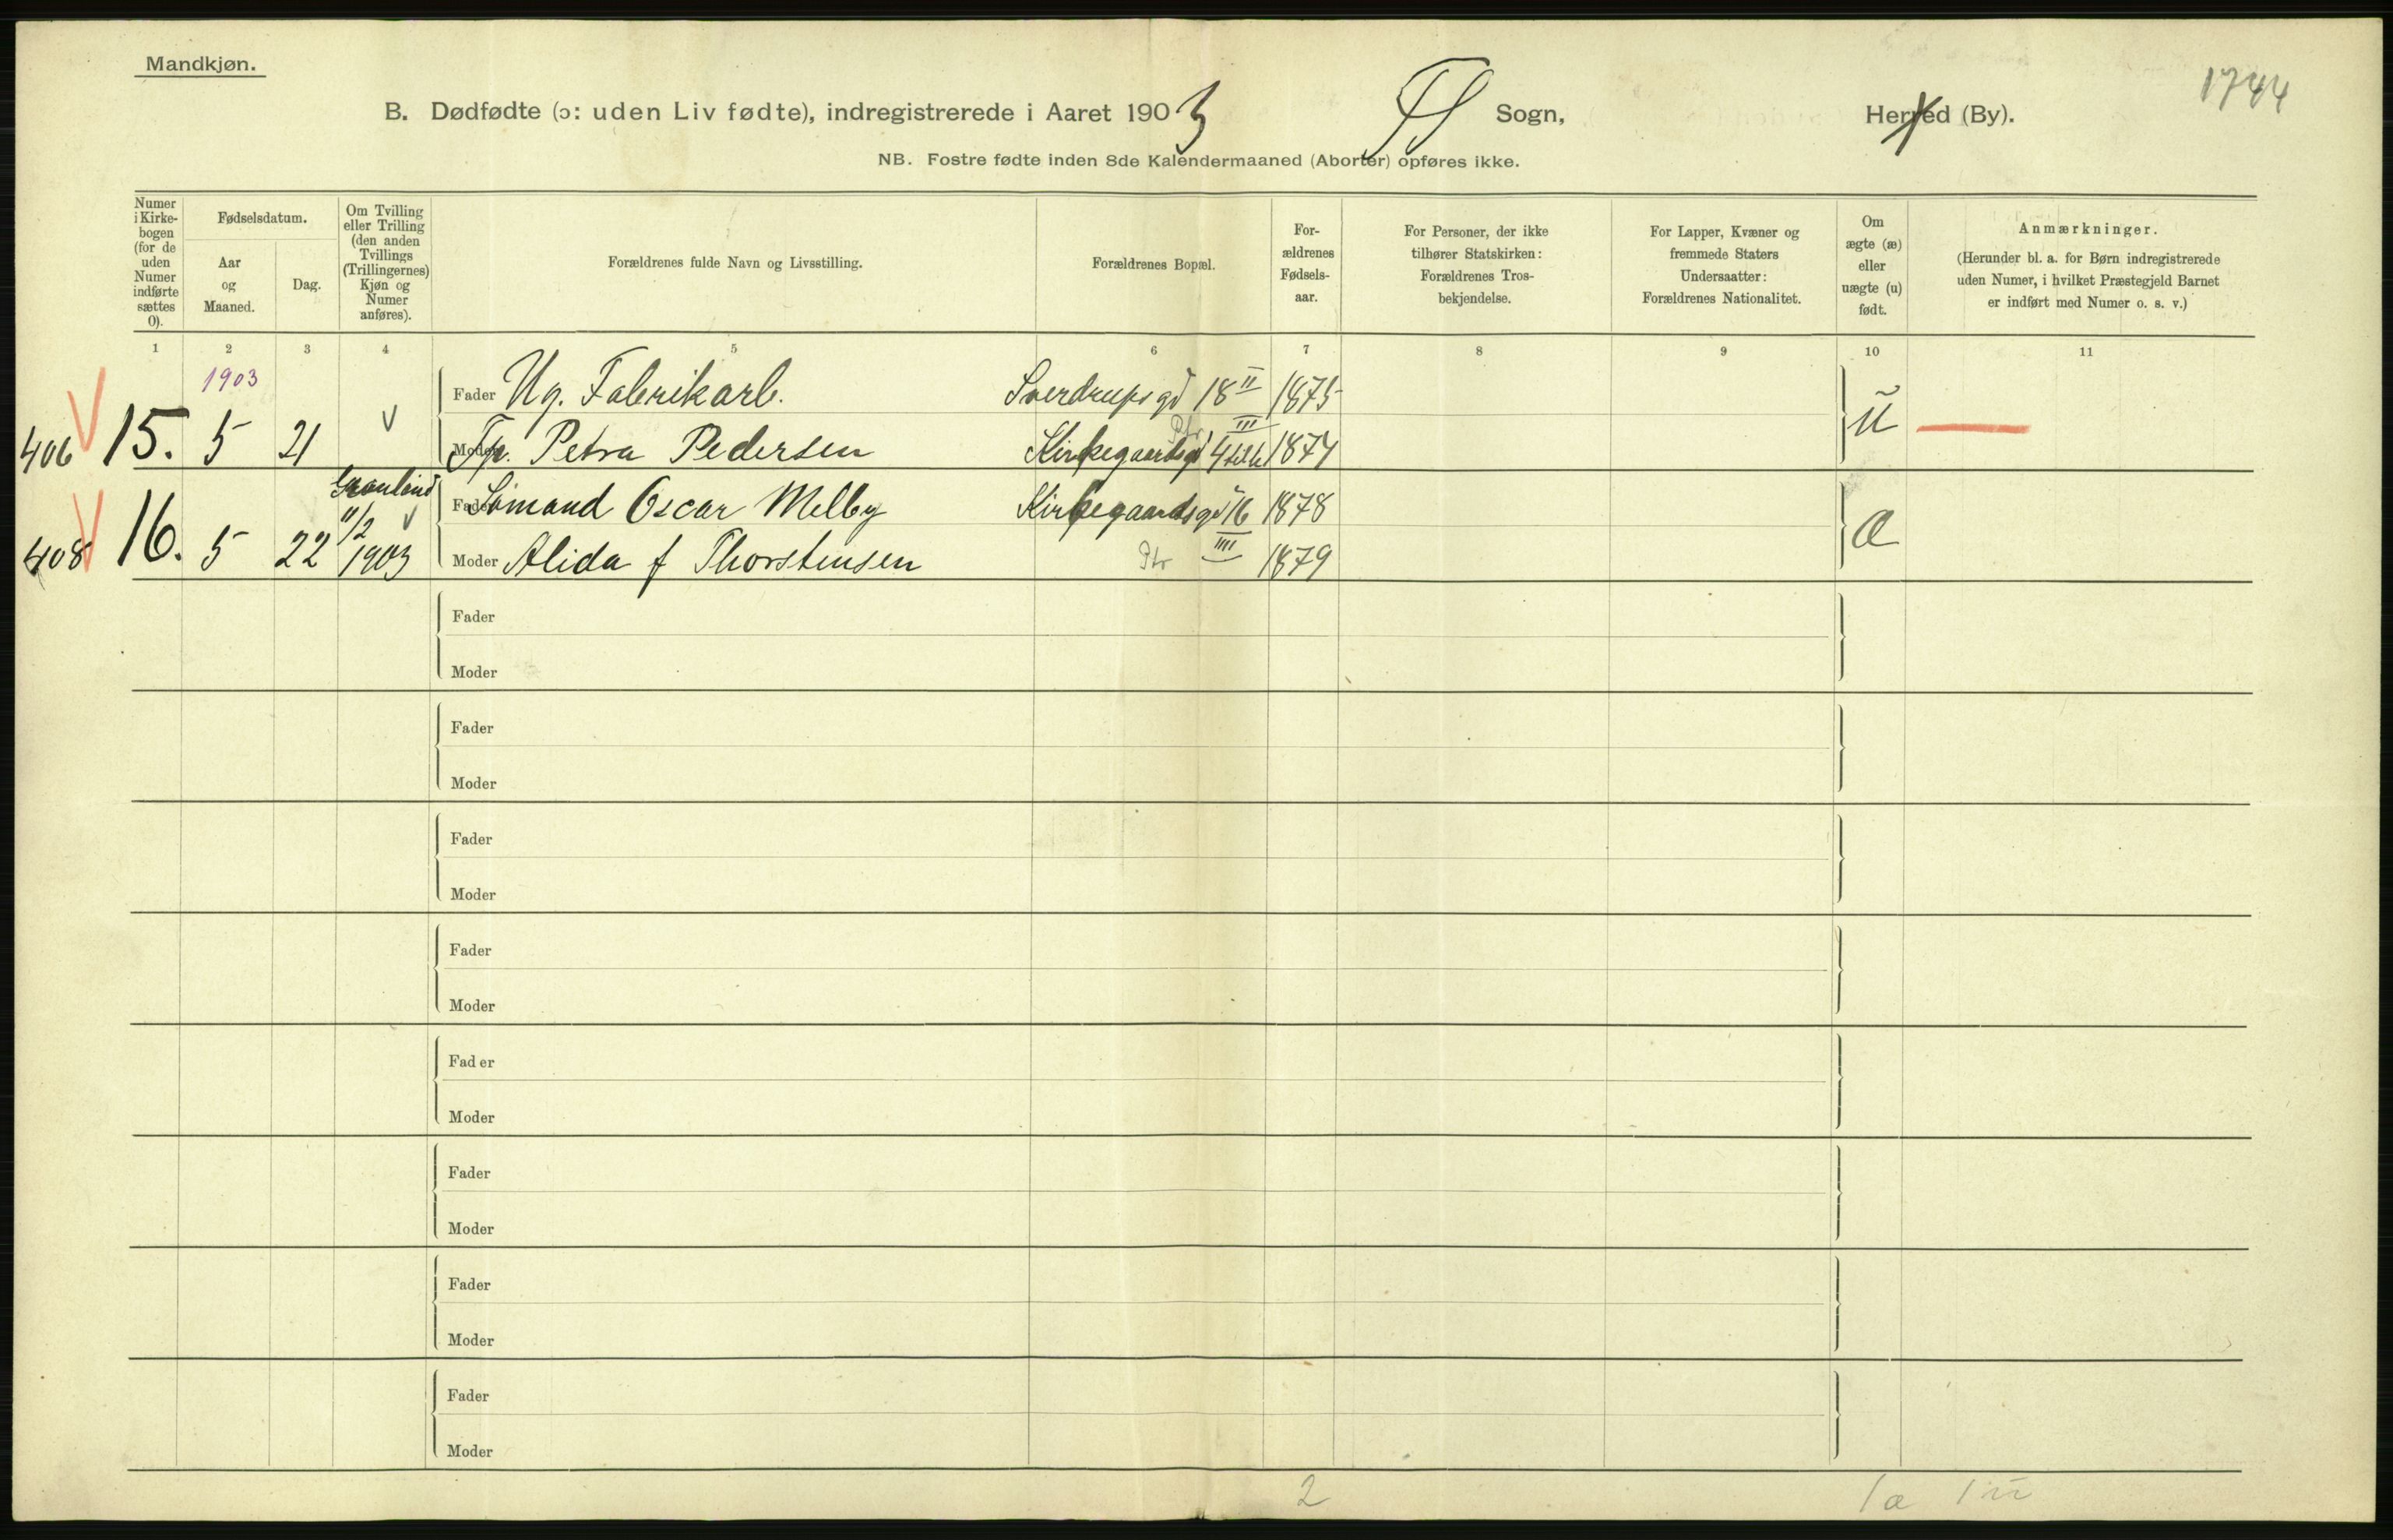 Mandkjøn.
1744
B. Dødfødte (ɔ: uden Liv fødte), indregistrerede i Aaret 1903 Sogn, Herred (By).
NB. Fostre fødte inden 8de Kalendermaaned (Aborter) opføres ikke.
Numer i Kirkebogen (for de uden Numer indførte sættes 0).
Fødselsdatum.
Aar og Maaned.
Dag.
Om Tvilling eller Trilling (den anden Tvillings (Trillingernes) Kjøn og Numer anføres).
Forældrenes fulde Navn og Livsstilling.
Forældrenes Bopæl.
Forældrenes Fødselsaar.
For Personer, der ikke tilhører Statskirken: Forældrenes Trosbekjendelse.
For Lapper, Kvæner og fremmede Staters Undersaatter: Forældrenes Nationalitet.
Om ægte (æ) eller uægte (u) født.
Anmærkninger.
(Herunder bl. a. for Børn indregistrerede uden Numer, i hvilket Præstegjeld Barnet er indført med Numer o. s. v.)
1 2 3 4 5 6 7 8 9 10 11
1903
Fader Ug. Fabrikarb. Sverdrupsgd 18 II 1875
406 15. 5 21 Moder Tp. Petra Pedersen Kirkegaardsgd 4 III 1874 u
Grønland Fader Sømand Oscar Melby Kirkegaardsgd 16 1878
408 16. 5 22 11/2 1903 Moder Alida f Thorstensen Ptr IIII 1879 æ
Fader
Moder
Fader
Moder
Fader
Moder
Fader
Moder
Fader
Moder
Fader
Moder
Fader
Moder
Fader
Moder
2 1 æ 1 u